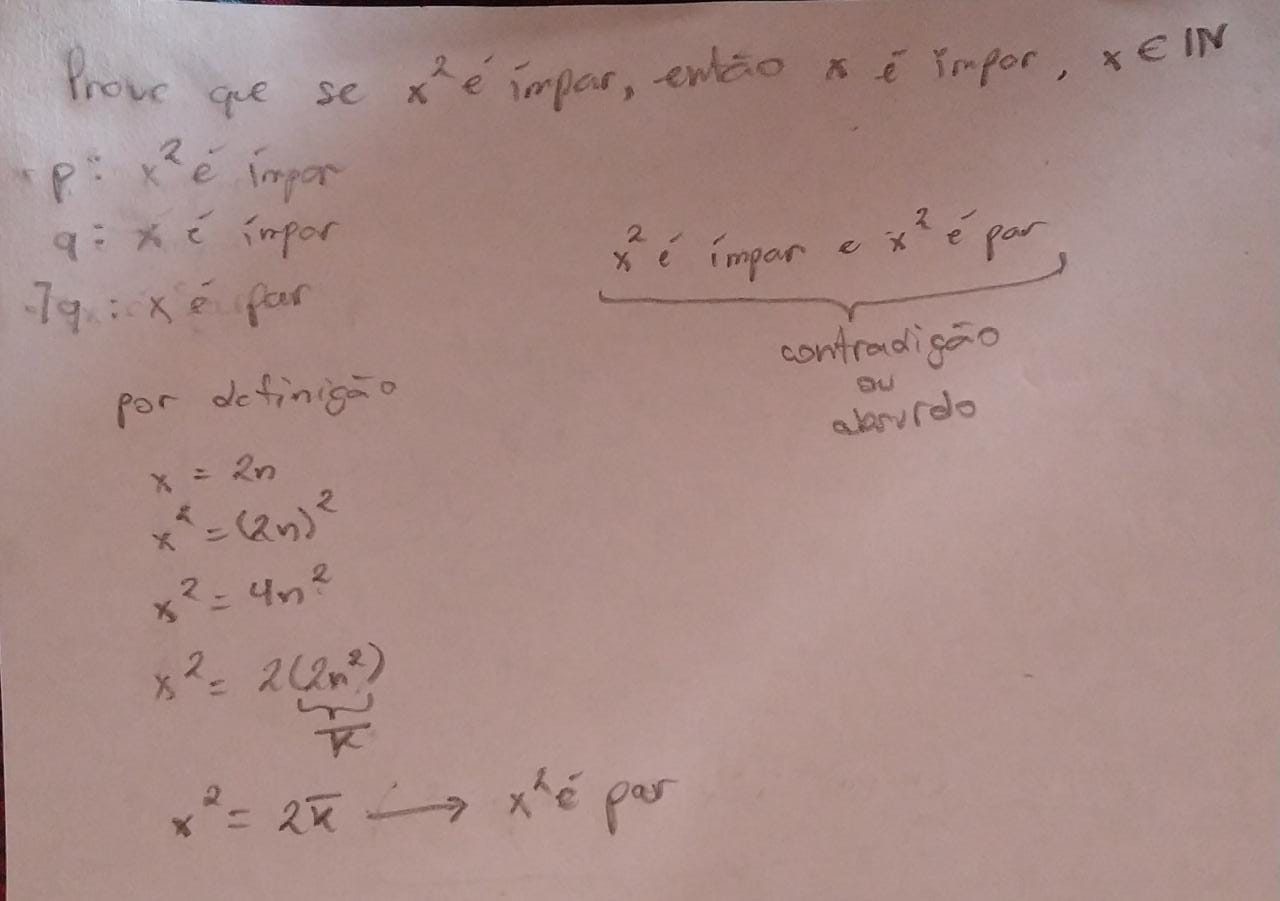 Prove que se x² é ímpar, então x é ímpar, x ∈ IN
p: x² é ímpar
q: x é ímpar
¬q: x é par
por definição
x = 2n
x² = (2n)²
x² = 4n²
x² = 2(2n²)
k̅
x² = 2k̅ → x² é par
x² é ímpar e x² é par
contradição
ou
absurdo